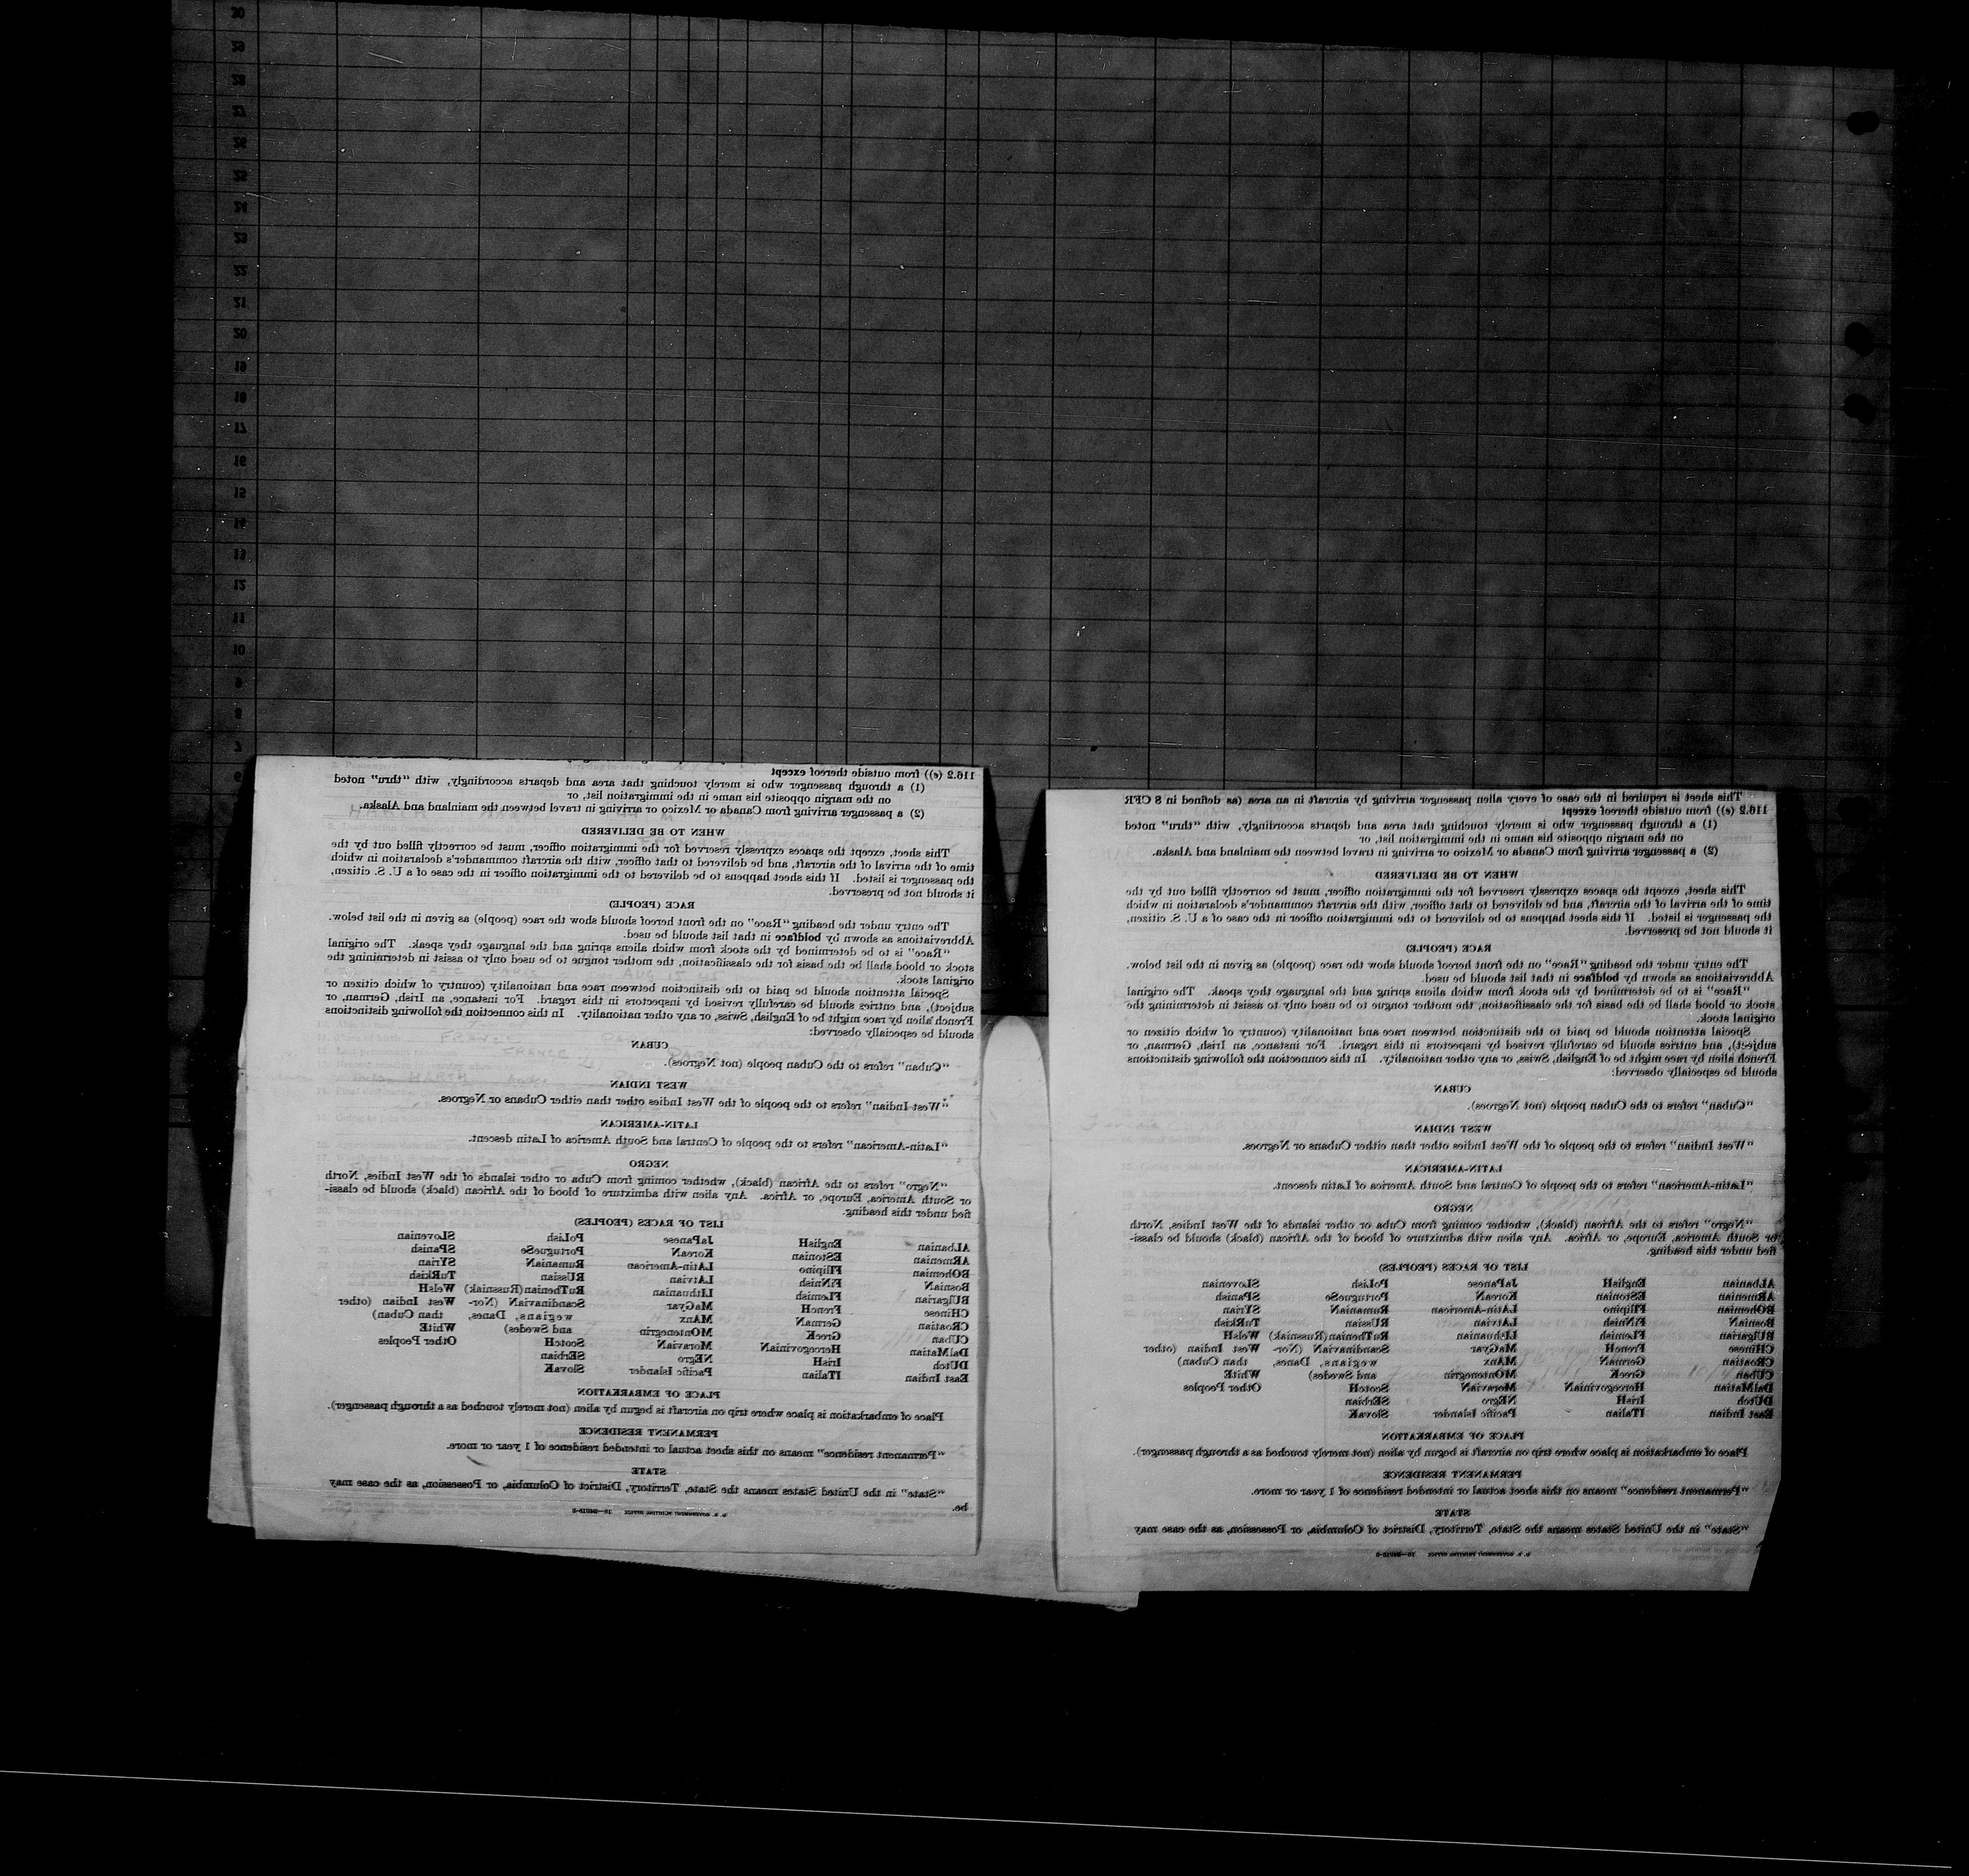 30
29
28
27
26
25
24
23
22
21
20
19
18
17
16
15
14
13
12
11
10
9
8
7
6
This sheet is required in the case of every alien passenger arriving by aircraft in an area (as defined in 8 CFR
116.2 (e)) from outside thereof except
(1) a through passenger who is merely touching that area and departs accordingly, with "thru" noted
on the margin opposite his name in the immigration list, or
(2) a passenger arriving from Canada or Mexico or arriving in travel between the mainland and Alaska.
WHEN TO BE DELIVERED
This sheet, except the spaces expressly reserved for the immigration officer, must be correctly filled out by the
time of the arrival of the aircraft, and be delivered to that officer, with the aircraft commander's declaration in which
the passenger is listed. If this sheet happens to be delivered to the immigration officer in the case of a U. S. citizen,
it should not be preserved.
RACE (PEOPLE)
The entry under the heading "Race" on the front hereof should show the race (people) as given in the list below.
Abbreviations as shown by boldface in that list should be used.
"Race" is to be determined by the stock from which aliens spring and the language they speak. The original
stock or blood shall be the basis for the classification, the mother tongue to be used only to assist in determining the
original stock.
Special attention should be paid to the distinction between race and nationality (country of which citizen or
subject), and entries should be carefully revised by inspectors in this regard. For instance, an Irish, German, or
French alien by race might be of English, Swiss, or any other nationality. In this connection the following distinctions
should be especially observed:
CUBAN
"Cuban" refers to the Cuban people (not Negroes).
WEST INDIAN
"West Indian" refers to the people of the West Indies other than either Cubans or Negroes.
LATIN-AMERICAN
"Latin-American" refers to the people of Central and South America of Latin descent.
NEGRO
"Negro" refers to the African (black), whether coming from Cuba or other islands of the West Indies, North
or South America, Europe, or Africa. Any alien with admixture of blood of the African (black) should be classi-
fied under this heading.
LIST OF RACES (PEOPLES)
ALbanian EnglisH JaPanese PoLish SLovenian
ARmenian EStonian KoreaN PortugueSe SPanish
BOhemian FIlipino LAtin-American RumaniaN SYrian
BosniaN FiNnish LAtvian RUssian TurKish
BUlgarian FLemish LIthuanian RuThenian (Russniak) WelsH
CHinese FrencH MaGyar ScandinaviaN (Nor- West Indian (other
CRoatian GermaN MAnx wegians, Danes, than Cuban)
CUban GreeK MOntenegrin and Swedes) WhitE
DalMatian HercegoviniaN MoraviaN ScotcH Other Peoples
DUtch IrisH NEgro SErbian
East Indian ITalian Pacific Islander SlovaK
PLACE OF EMBARKATION
Place of embarkation is place where trip on aircraft is begun by alien (not merely touched as a through passenger).
PERMANENT RESIDENCE
"Permanent residence" means on this sheet actual or intended residence of 1 year or more.
STATE
"State" in the United States means the State, Territory, District of Columbia, or Possession, as the case may
116.2 (e)) from outside thereof except
(1) a through passenger who is merely touching that area and departs accordingly, with "thru" noted
on the margin opposite his name in the immigration list, or
(2) a passenger arriving from Canada or Mexico or arriving in travel between the mainland and Alaska.
WHEN TO BE DELIVERED
This sheet, except the spaces expressly reserved for the immigration officer, must be correctly filled out by the
time of the arrival of the aircraft, and be delivered to that officer, with the aircraft commander's declaration in which
the passenger is listed. If this sheet happens to be delivered to the immigration officer in the case of a U. S. citizen,
it should not be preserved.
RACE (PEOPLE)
The entry under the heading "Race" on the front hereof should show the race (people) as given in the list below.
Abbreviations as shown by boldface in that list should be used.
"Race" is to be determined by the stock from which aliens spring and the language they speak. The original
stock or blood shall be the basis for the classification, the mother tongue to be used only to assist in determining the
original stock.
Special attention should be paid to the distinction between race and nationality (country of which citizen or
subject), and entries should be carefully revised by inspectors in this regard. For instance, an Irish, German, or
French alien by race might be of English, Swiss, or any other nationality. In this connection the following distinctions
should be especially observed:
CUBAN
"Cuban" refers to the Cuban people (not Negroes).
WEST INDIAN
"West Indian" refers to the people of the West Indies other than either Cubans or Negroes.
LATIN-AMERICAN
"Latin-American" refers to the people of Central and South America of Latin descent.
NEGRO
"Negro" refers to the African (black), whether coming from Cuba or other islands of the West Indies, North
or South America, Europe, or Africa. Any alien with admixture of blood of the African (black) should be classi-
fied under this heading.
LIST OF RACES (PEOPLES)
ALbanian EnglisH JaPanese PoLish SLovenian
ARmenian EStonian KoreaN PortugueSe SPanish
BOhemian FIlipino LAtin-American RumaniaN SYrian
BosniaN FiNnish LAtvian RUssian TurKish
BUlgarian FLemish LIthuanian RuThenian (Russniak) WelsH
CHinese FrencH MaGyar ScandinaviaN (Nor- West Indian (other
CRoatian GermaN MAnx wegians, Danes, than Cuban)
CUban GreeK MOntenegrin and Swedes) WhitE
DalMatian HercegoviniaN MoraviaN ScotcH Other Peoples
DUtch IrisH NEgro SErbian
East Indian ITalian Pacific Islander SlovaK
PLACE OF EMBARKATION
Place of embarkation is place where trip on aircraft is begun by alien (not merely touched as a through passenger).
PERMANENT RESIDENCE
"Permanent residence" means on this sheet actual or intended residence of 1 year or more.
STATE
"State" in the United States means the State, Territory, District of Columbia, or Possession, as the case may
be.
U. S. GOVERNMENT PRINTING OFFICE